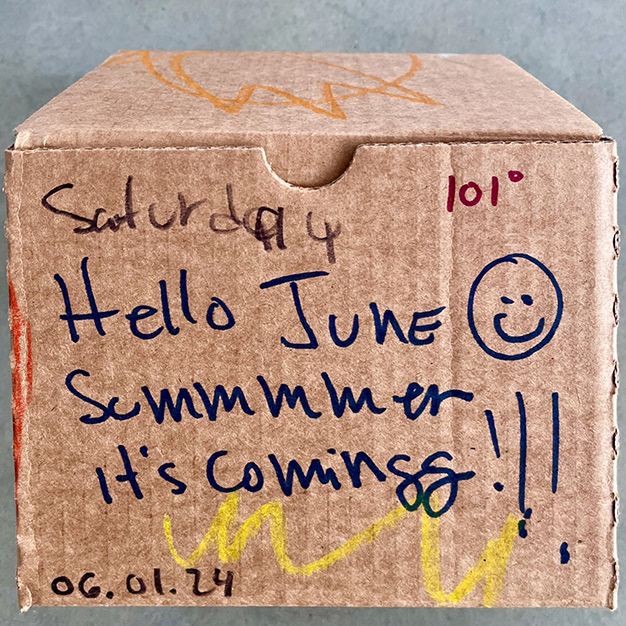 Saturday
101°
Hello June
Summmmer
it's comingg!!!
06.01.24